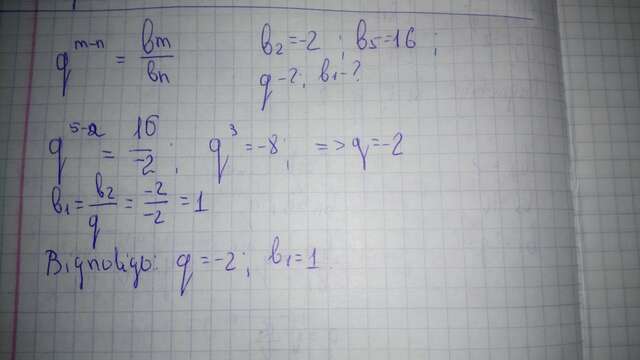 q^(m-n) = bm/bn
b2=-2 ; b5=16 ;
q-?; b1-?
q^(5-2) = 16/-2 ; q^3=-8; => q=-2
b1 = b2/q = -2/-2 = 1
Відповідь: q=-2; b1=1